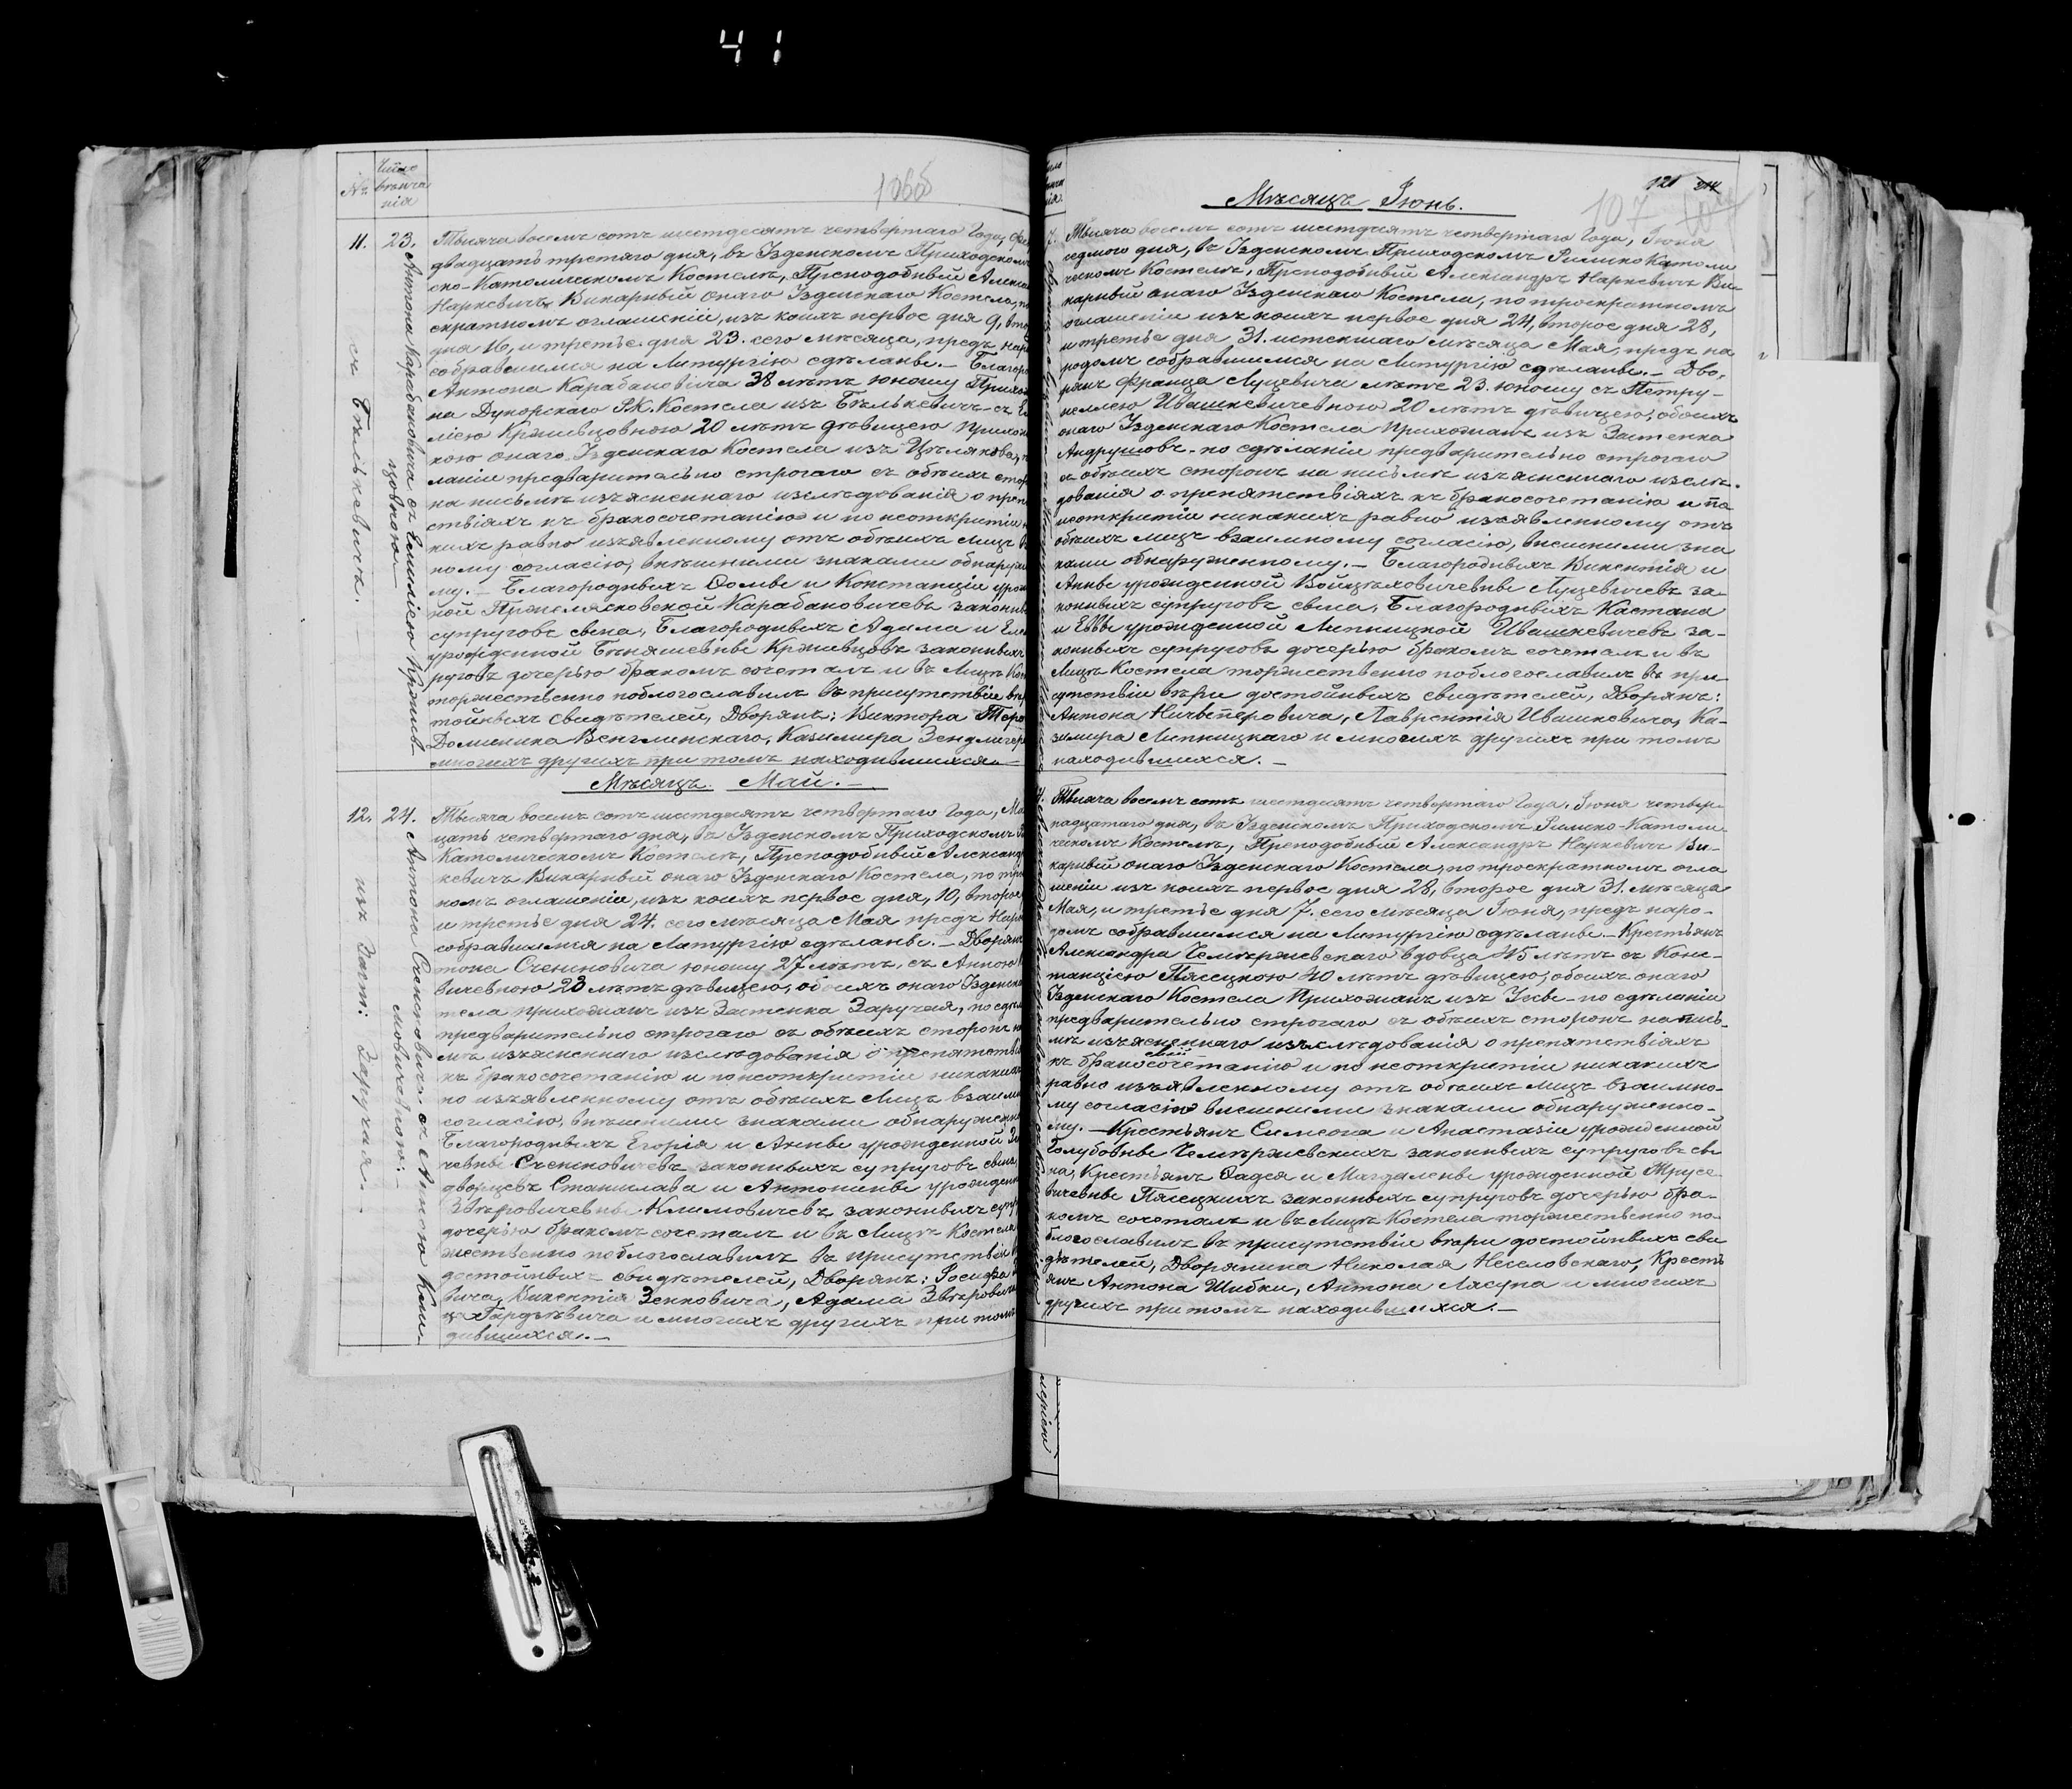 41
№ Число вѣнча нія
106об
11. 23.
Антона Карабановича съ Емиліею Кржив-
цовною
съ Бѣлькевичъ.
Тысяча восемъ сотъ шестдесятъ четвертаго Года,
двадцать третяго дня, въ Узденскомъ Приходскомъ
ско-Католическомъ Костелѣ, Преподобный Алекса
Наркевичъ Викарный онаго Узденскаго Костела, по
екратномъ оглашеніи, изъ коихъ первое дня 9, вто
дня 16, и третье дня 23. сего мѣсяца, предъ нар
собравшимся на Литургію сдѣланы. - Благоро
Антона Карабановича 38 лѣтъ юношу Прихо
на Дукорскаго Р.К. Костела изъ Бѣлькевичъ съ Е
ліею Кржывцовною 20 лѣтъ дѣвицею Прихож
кою онаго Узденскаго Костела изъ Цѣлякова, п
ланіи предварительно строгаго съ обѣихъ стор
на письмѣ изъясненнаго изслѣдованія о преп
ствіяхъ къ бракосочетанію и по неоткрытіи н
кихъ равно изъявленному отъ обѣихъ Лицъ в
ному согласію, внѣшними знаками обнаруж
му. - Благородныхъ Фомы и Констанціи урож
ной Пржелясковской Карабановичевъ законны
супруговъ сына, Благородныхъ Адама и Еле
урожденной Бѣняшевны Кржывцовъ законныхъ
руговъ дочерью бракомъ сочеталъ и въ Лицѣ Кос
торжественно поблогославилъ въ присутствіи вѣ
тойныхъ свидѣтелей, Дворянъ: Виктора Тер
Доминика Венглинскаго, Казимира Зендлигер
многихъ другихъ при томъ находившихся.
Мѣсяцъ Май.
12. 24.
Антона Сченсновича съ Анною Кли-
мовичевною.
изъ Заст: Заручая.
Тысяча восемъ сотъ шестдесятъ четвертаго Года, Ма
цать четвертаго дня, въ Узденскомъ Приходскомъ Р
Католическомъ Костелѣ, Преподобный Александ
кевичъ Викарный онаго Узденскаго Костела, по тро
номъ оглашеніи, изъ коихъ первое дня, 10, второе
и третье дня 24. сего мѣсяца Мая предъ наро
собравшимся на Литургію сдѣланы. - Дворян
тона Сченсновича юношу 27 лѣтъ, съ Анною
вичевною 23 лѣтъ дѣвицею, обоихъ онаго Узденска
тела прихожанъ изъ Застенка Заручая, по сдѣл
предварительно строгаго съ обѣихъ сторонъ н
мѣ изъясненнаго изслѣдованія о препятств
къ бракосочетанію и по неоткрытіи никакихъ
но изъявленному отъ обѣихъ Лицъ взаим
согласію, внѣшними знаками обнаруженн
Благородныхъ Егорія и Анны урожденной
чевны Сченсновичевъ законныхъ супруговъ сына
дворянъ Станислава и Антонины урожден
Звѣровичевны Климовичевъ законныхъ супр
дочерью бракомъ сочеталъ и въ Лицѣ Костела
жественно поблогославилъ въ присутствіи в
достойныхъ свидѣтелей, Дворянъ: Іосифа
вича, Викентія Зенковича, Адама Звѣрович
и многихъ другихъ при томъ
дившихся. -
Мѣсяцъ Іюнь.
121
107
Тысяча восемъ сотъ шестдесятъ четвертаго Года, Іюня
седмого дня, въ Узденскомъ Приходскомъ Римско Католи
ческомъ Костелѣ, Преподобный Александръ Наркевичъ Ви-
карный онаго Узденскаго Костела, по троекратномъ
оглашеніи изъ коихъ первое дня 24, второе дня 28,
и третье дня 31. истекшаго мѣсяца Мая, предъ на
родомъ собравшимся на Литургію сдѣланы. - Дво-
рянъ Франца Луцевича лѣтъ 23. юношу съ Петру-
неллею Ивашкевичевною 20 лѣтъ дѣвицею, обоихъ
онаго Узденскаго Костела Прихожанъ изъ Застенка
Андрушовъ - по сдѣланіи предварительно строгаго
съ обѣихъ сторонъ на письмѣ изъясненнаго изслѣ-
дованія о препятствіяхъ къ бракосочетанію и по
неоткрытіи никакихъ равно изъявленному отъ
обѣихъ лицъ взаимному согласію, внешними зна
ками обнаруженному. - Благородныхъ Викентія и
Анны урожденной Войцѣховичевны Луцевичевъ за-
конныхъ супруговъ сына, Благородныхъ Каетана
и Еввы урожденной Липницкой Ивашкевичевъ за-
конныхъ супруговъ дочерью бракомъ сочеталъ и въ
Лицѣ Костела торжественно поблогославилъ въ при-
сутствіи вѣры достойныхъ свидѣтелей, Дворянъ:
Антона Ничыперовича, Лаврентія Ивашкевича, Ка-
зимира Липницкаго и многихъ другихъ при томъ
находившихся. -
Тысяча восемъ сотъ шестдесятъ четвертаго Года, Іюня четвер-
надцатаго дня, въ Узденскомъ Приходскомъ Римско-Католи-
ческомъ Костелѣ, Преподобный Александръ Наркевичъ Ви-
карный онаго Узденскаго Костела, по троекратномъ огла
шеніи изъ коихъ первое дня 28, второе дня 31. мѣсяца
Мая, и третье дня 7. сего мѣсяца Іюня, предъ наро-
домъ собравшимся на Литургію сдѣланы. - Крестьянъ
Александра Чемѣржевскаго вдовца 45 лѣтъ съ Конс-
танціею Пясецкою 40 лѣтъ дѣвицею, обоихъ онаго
Узденскаго Костела Прихожанъ изъ Усы - по сдѣланіи
предварительно строгаго съ обѣихъ сторонъ на пись-
мѣ изъясненнаго изслѣдованія о препятствіяхъ
къ бракосочетанію и по неоткрытіи никакихъ
равно изъявленному отъ обѣихъ лицъ взаимно-
му согласію внешними знаками обнаруженно-
му. - Крестьянъ Симеона и Анастазіи урожденной
Голубовны Чемѣржевскихъ законныхъ супруговъ сы
на, Крестьянъ Фадея и Магдалены урожденной Трусе-
вичевны Пясецкихъ законныхъ супруговъ дочерью бра-
комъ сочеталъ и въ Лицѣ Костела торжественно по-
блогославилъ въ присутствіи вѣры достойныхъ сви
дѣтелей, Дворянина Николая Неселовскаго, Кресть
янъ Антона Шибки, Антона Лясупа и многихъ
другихъ при томъ находившихся. -